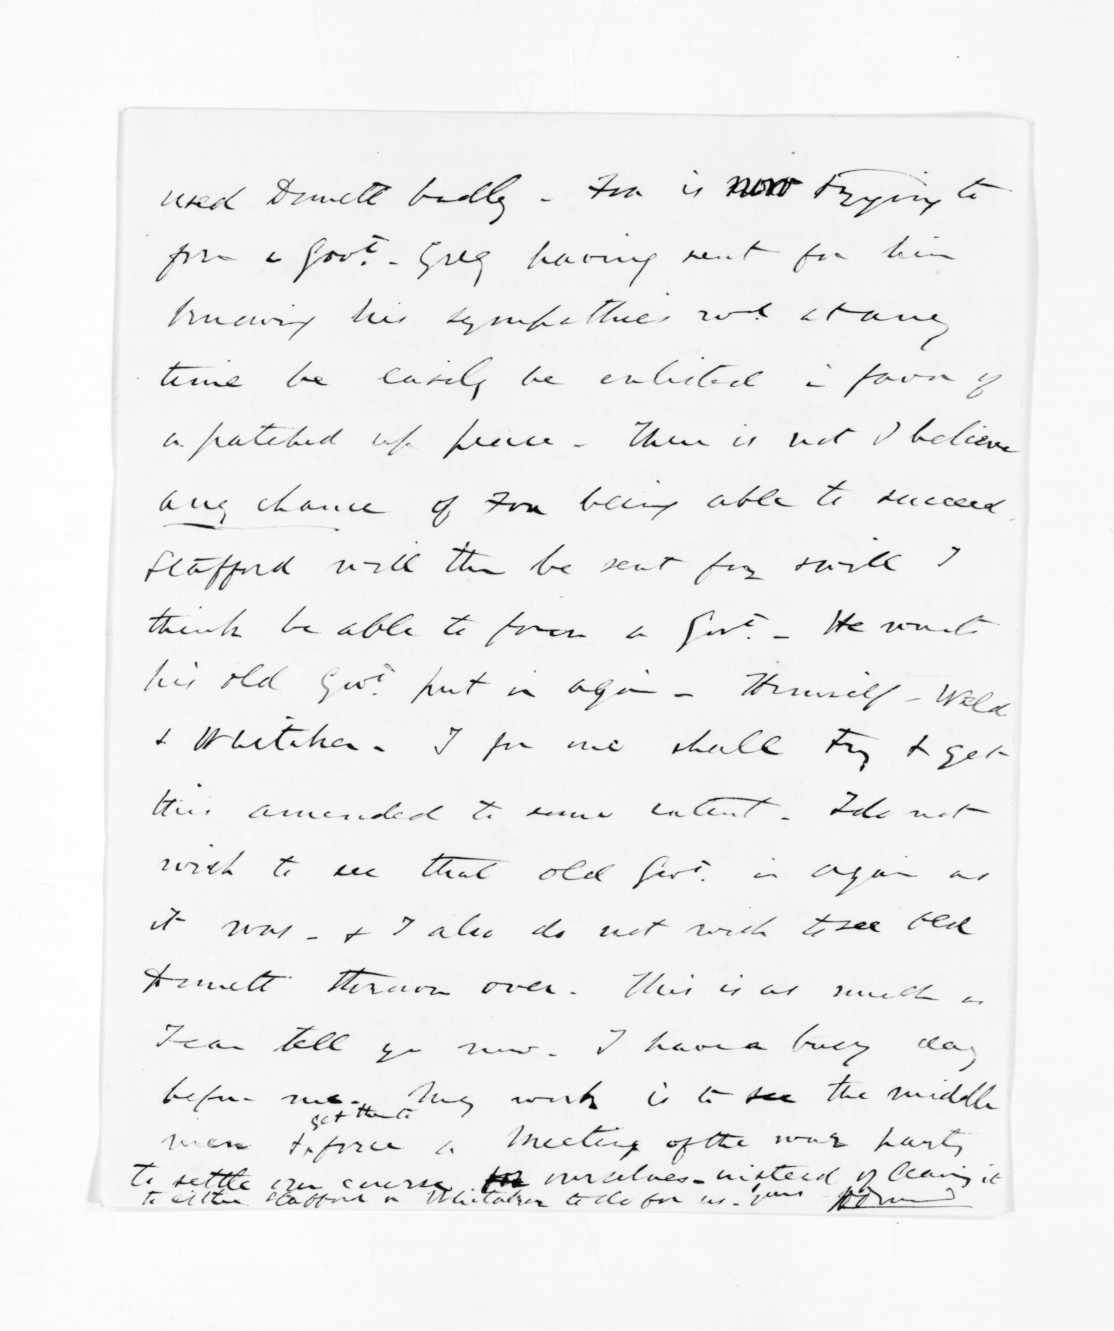 used Domett badly - Fox is now trying to
form a Govt. - Grey having sent for him
knowing his sympathies wd. at any
time be easily be enlisted in favor of
a patched up peace - There is not I believe
any chance of Fox being able to succeed.
Stafford will then be sent for & will I
think be able to form a Govt. - He wants
his old Govt. put in again - Himself - Weld
& Whitaker - I for one shall try & get
this amended to some extent - I do not
wish to see that old Govt. in again as
it was - & I also do not wish to see old
Domett thrown over. This is as much as
I can tell you now - I have a busy day
before me - My work is to see the middle
get them to
men & force a meeting of the war party
to settle our course for ourselves - instead of leaving it
to either Stafford or Whitaker to do for us - Yours